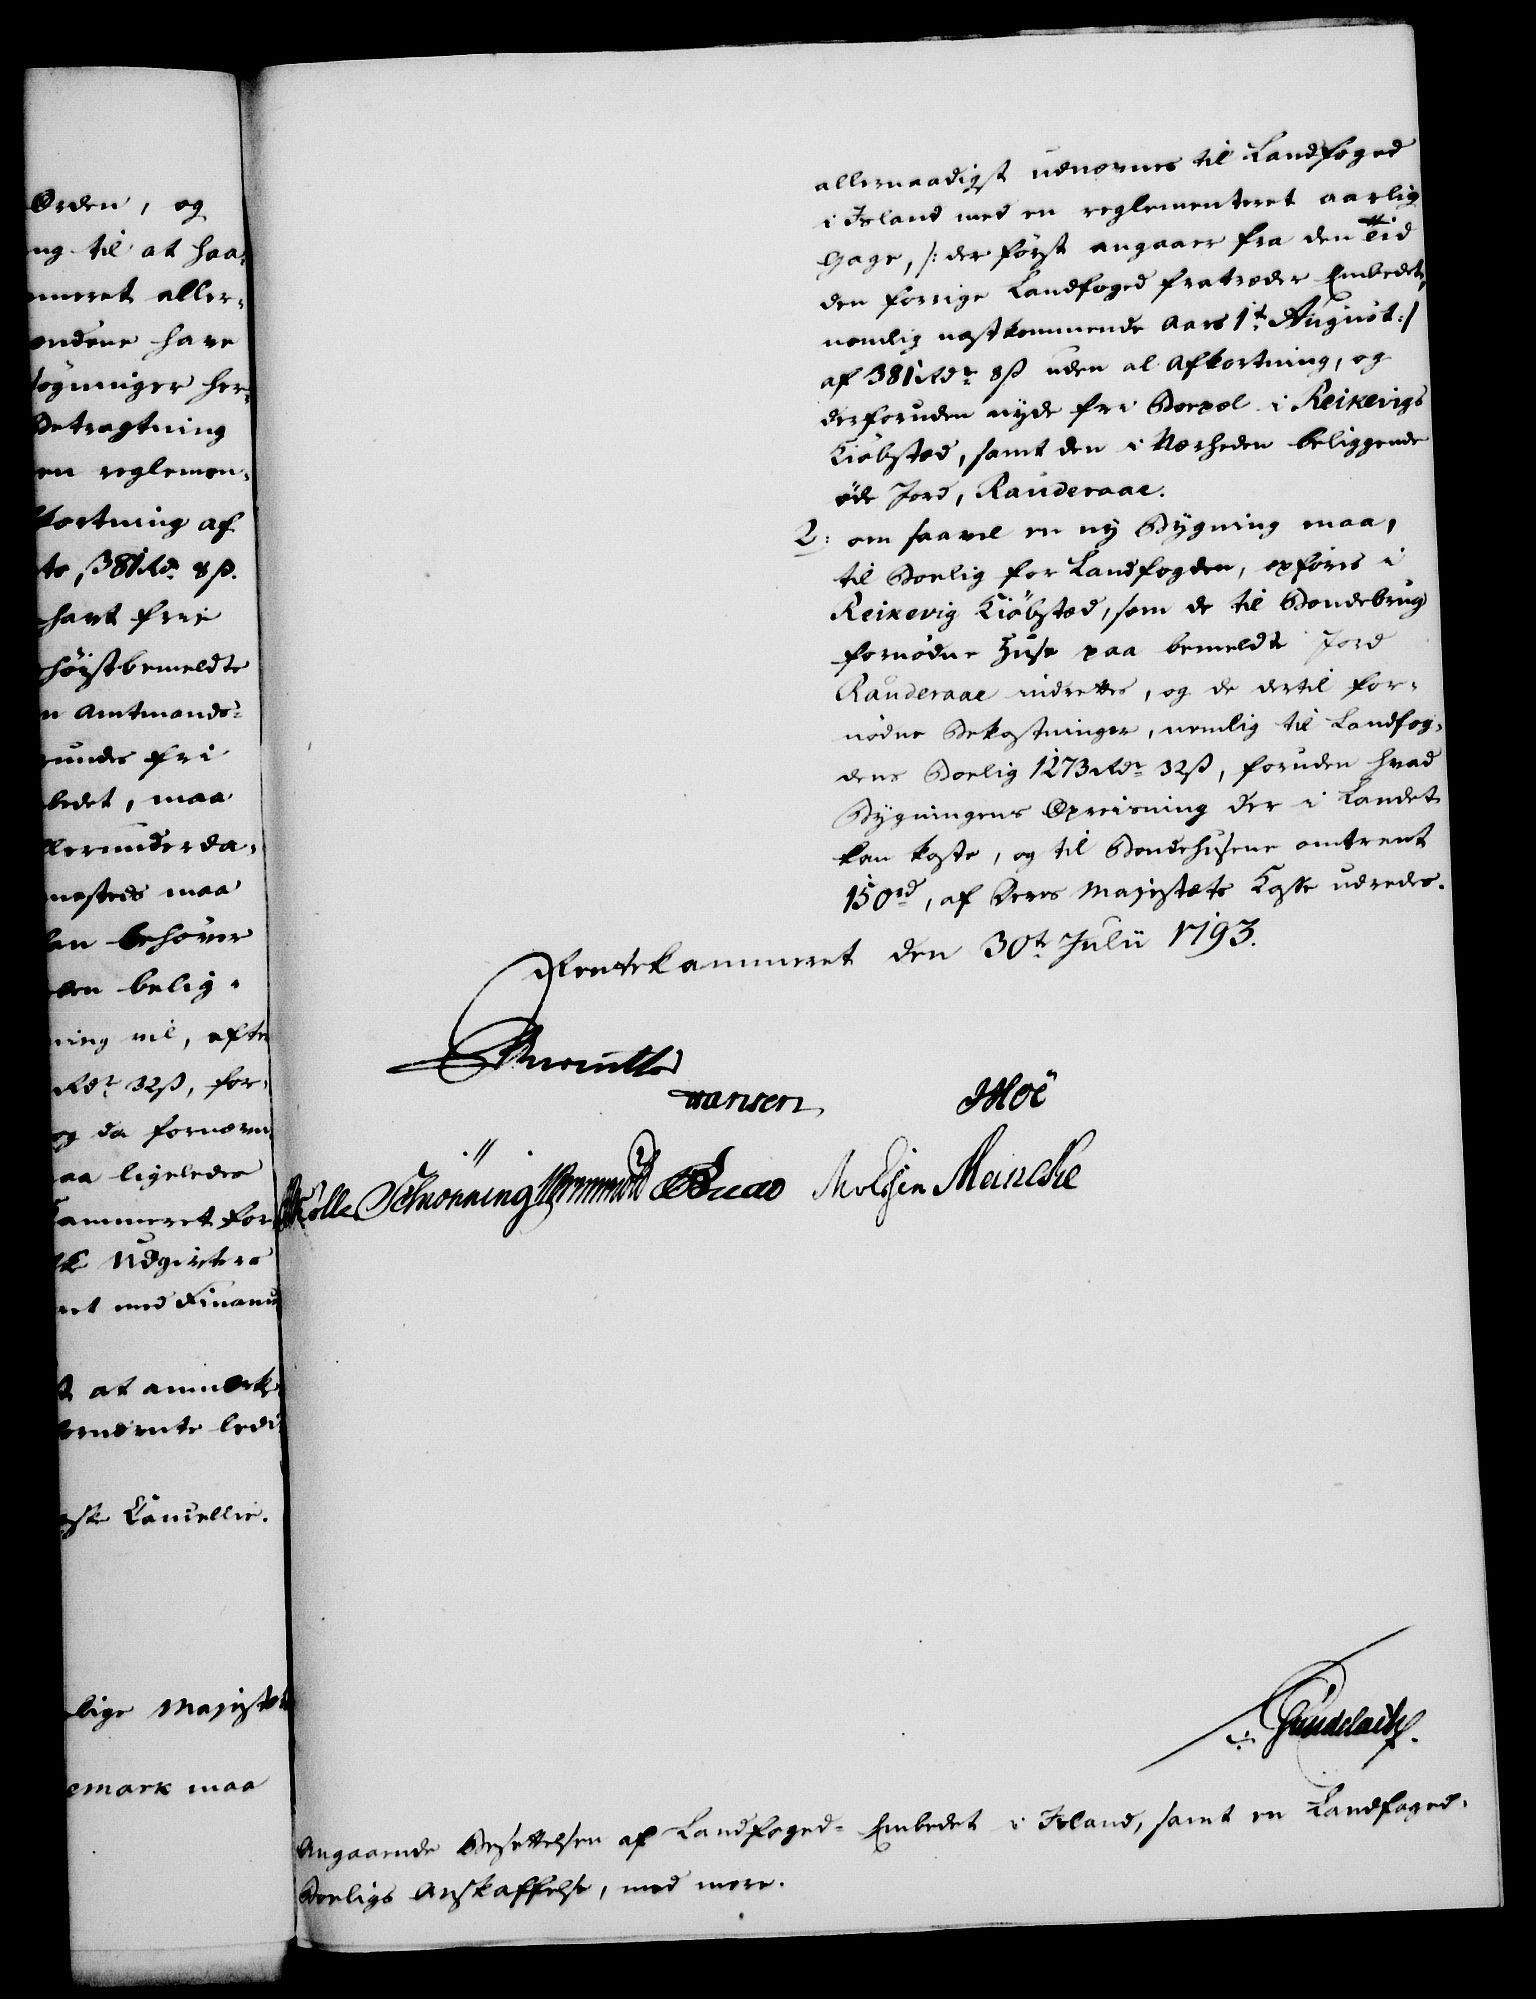 Orden, og
ng til at haa-
meret aller-
endene have
søgninger her-
Betragtning
en reglemen-
kortning af
te, 381 Rdr 8 ß.
havt frie
høistbemeldte
n Amtmands-
undes fri
bedet, maa
llerunderda-
nesteds maa
len behøver
den belig-
ning vil, efter
Rdr 32 ß, for-
og da fornævn
aa ligeledes
Kammeret for
Udgivters
ret med Finants
at anmærke
ske Cancellie.
lige Majestæt
emark maa
allernaadigst udnævnes til Landfoged
i Island med en reglementeret aarlig
Gage, /: der først angaaer fra den Tid
den forrige Landfoged fratræder Embedet,
nemlig næstkommende Aars 1t August :/
af 381 Rdr 8 ß uden al Afkortning, og
desforuden nyde fri Boepæl i Reikevigs
Kiøbstæd, samt den i Nærheden beliggende
øde Jord, Rauderaae.
2: om saavel en ny Bygning maa,
til Boelig for Landfogden, opføres i
Reikevig Kiøbstæd, som de til Bondebrug
fornødne Huse paa bemeldte Jord
Rauderaae indrettes, og de dertil for-
nødne Bekostninger, nemlig til Landfog-
dens Boelig 1273 Rdr 32 ß, foruden hvad
Bygningens Opreisning der i Landet
kan koste, og til Bondehusene omtrent
150 rd, af Deres Majestæts Casse udredes.
Rentekammeret den 30te Julii 1793.
Hansen
Moe
Schiønning Wormskiold
Meincke
Gundelach.
Angaaende Besættelsen af Landfoged-Embedet i Island, samt en Landfoged-
Boeligs Anskaffelse, med mere.